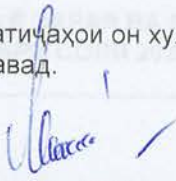 атиҷаҳои он ху
авад.